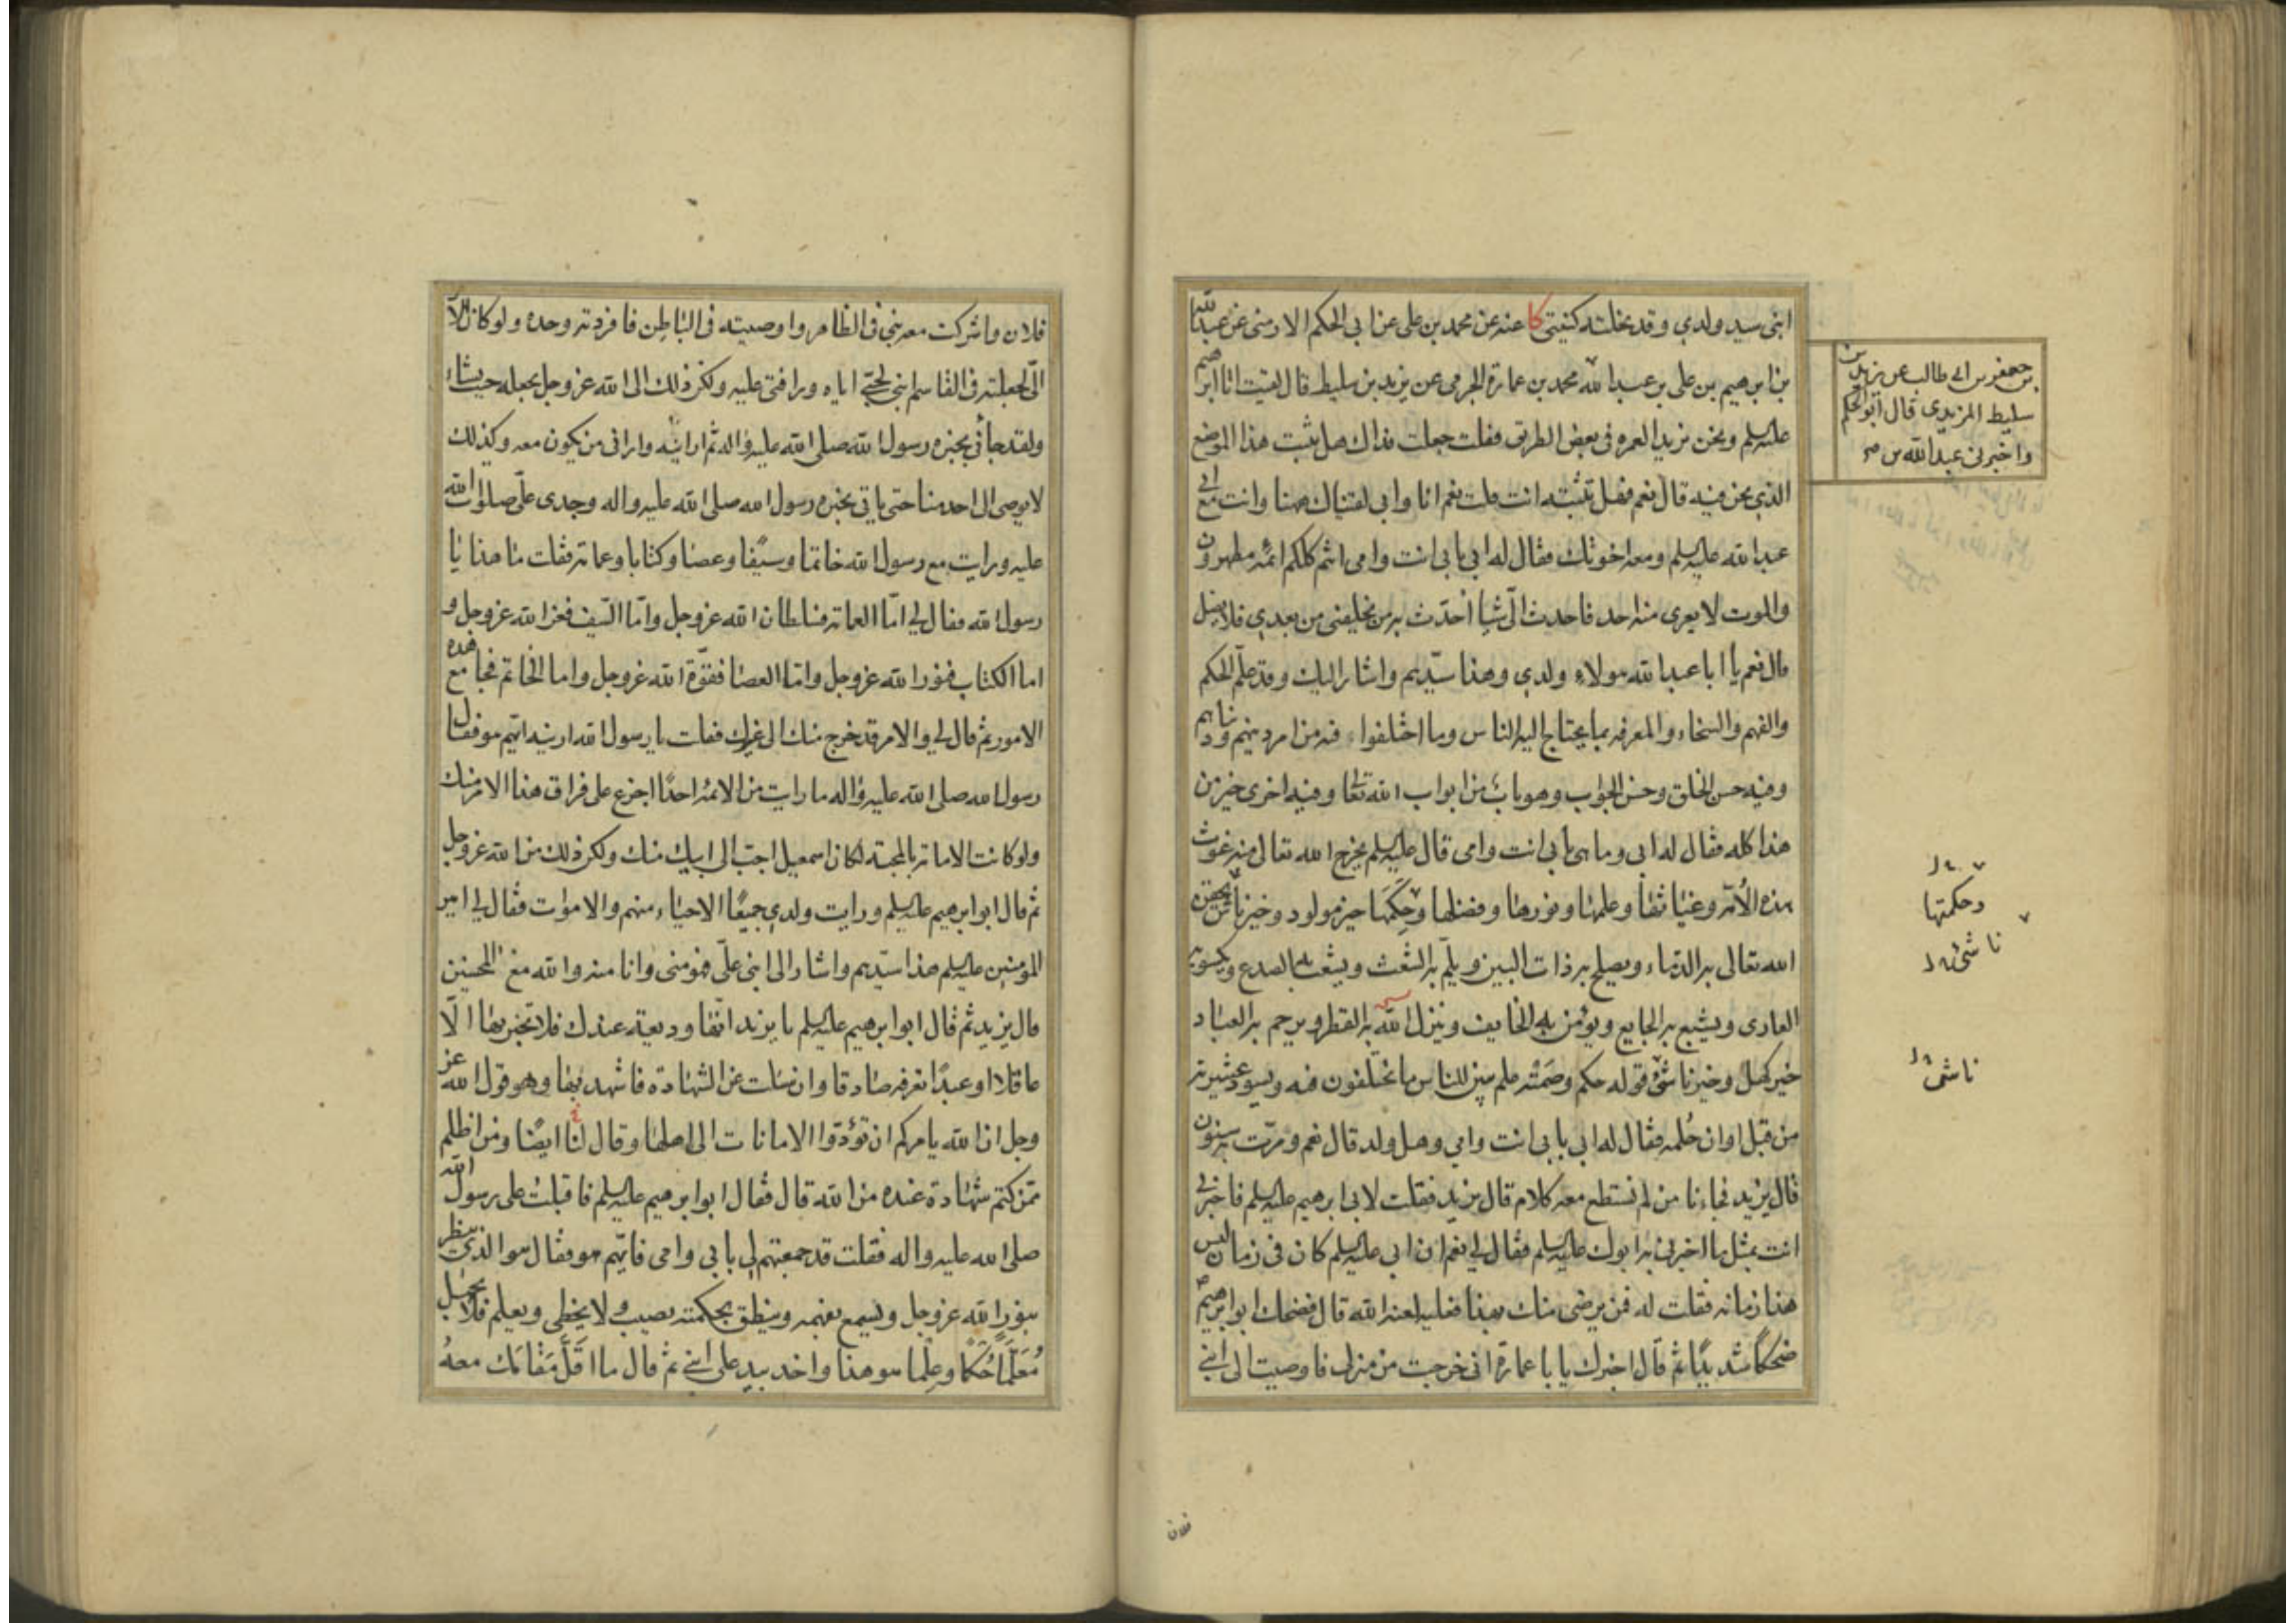 ابنى سيد ولدي وقد نحلته كنيتى كا عنه عن محمد بن على عن ابى الحكم الارمنى عن عبد الله
بن ابرهيم بن على بن عبد الله محمد بن عمارة الجرمى عن يزيد بن سليط قال لقيت ابا ابرهيم
عليه السلم ونحن نريد العمره فى بعض الطريق فقلت جعلت فداك هل تثبت هذا الموضع
الذي نحن فيه قال نعم فهل تثبته انت قلت نعم انا وابى لقيناك ههنا وانت مع ابى
عبد الله عليه السلم ومعه اخوتك فقال له ابى بابى انت وامى انتم كلكم ائمه مطهرون
والموت لا يعرى منه احد فاحدث الىّ شيئا أحدّث به من يخلفنى من بعدي فلا يضل
قال نعم يا ابا عبد الله هولاء ولدي وهذا سيّدهم واشار اليك وقد علّم الحكم
والفهم والسخاء والمعرفه بما يحتاج اليه الناس وما اختلفوا فيه من امر دينهم ودنياهم
وفيه حسن الخلق وحسن الجواب وهو باب من ابواب الله تعا وفيه اخرى خير من
هذا كله فقال له ابى وما هى بابى انت وامى قال عليه السلم يخرج الله تعالى منه غوث
هذه الأمّة وغياثها وعلمها ونورها وفضلها وحِكَمَها خير مولود وخير ناش يحقن
الله تعالى به الدماء ويصلح به ذات البين ويلمّ به الشعث ويشعب به الصدع ويكسو به
العارى ويشبع به الجايع ويؤمن به الخايف وينزل الله به القطر ويرحم به العباد
خير كهل وخير ناشئ قوله حكم وصَمْته علم يبين للناس ما يختلفون فيه ويسود عشيرته
من قبل اوان حُلمه فقال له ابى بابى انت وامي وهل ولد قال نعم ومرّت به سنون
قال يزيد فجاءنا من لم نستطع معه كلام قال يزيد فقلت لابى ابرهيم عليه السلم فاخبرنى
انت بمثل ما اخبرنى به ابوك عليه السلم فقال لي نعم ان ابى عليه السلم كان فى زمان ليس
هذا زمانه فقلت له فمن يرضى منك بهذا فعليه لعنه الله قال فضحك ابو ابرهيم
ضحكًا شديدًا ثم قال اخبرك يا با عمارة انى خرجت من منزلى فاوصيت الى ابنى
بن جعفر بن ابى طالب عن يزيد بن
سليط الزيدى قال ابو الحكم
واخبرنى عبد الله بن
وحكمتها
ناشئ
ناشئ
فلان
فلان واشركت معه بنى فى الظاهر واوصيته فى الباطن فافردته وحده ولو كان الامر
الىّ لجعلته فى القاسم ابنى لحبّى اياه ورافتى عليه ولكن ذلك الى الله عز وجل يجعله حيث يشاء
ولقد جاءنى بخبره رسول الله صلى الله عليه واله ثم ارانيه وارانى من يكون معه وكذلك
لا يوصى الى احد منا حتى ياتى بخبره رسول الله صلى الله عليه واله وجدى علىّ صلوات الله
عليه ورايت مع رسول الله خاتما وسيفا وعصا وكتابا وعمامة فقلت ما هذا يا
رسول الله فقال لي امّا العمامة فسلطان الله عز وجل وامّا السّيف فعز الله عز وجل و
اما الكتاب فنور الله عز وجل وامّا العصا فقوّة الله عز وجل واما الخاتم فجامع هذه
الامور ثم قال لي والامر قد خرج منك الى غيرك فقلت يا رسول الله ارنيه ايّهم هو فقال
رسول الله صلى الله عليه واله ما رايت من الائمه احدًا اجزع على فراق هذا الامر منك
ولو كانت الامامة بالمحبة لكان اسمعيل احبّ الى ابيك منك ولكن ذلك من الله عز وجل
ثم قال ابو ابرهيم عليه السلم ورايت ولدي جميعًا الاحياء منهم والاموات فقال لي امير
المؤمنين عليه السلم هذا سيّدهم واشار الى ابنى علىّ فهو منى وانا منه والله مع المحسنين
قال يزيد ثم قال ابو ابرهيم عليه السلم يا يزيد انّها وديعة عندك فلا تخبر بها الّا
عاقلا او عبدًا تعرفه صادقا وان سئلت عن الشهادة فاشهد بها وهو قول الله عز
وجل ان الله يامركم ان تؤدّوا الامانات الى اهلها وقال لنا ايضًا ومن اظلم
ممّن كتم شهادة عنده من الله قال فقال ابو ابرهيم عليه السلم فاقبلت على رسول الله
صلى الله عليه واله فقلت قد جمعتهم لى بابى وامى فايّهم هو فقال هو الذى ينظر
بنور الله عز وجل ويسمع بفهمه وينطق بحكمته يصيب ولا يخطى ويعلم فلا يجهل
مُعَلَّمًا حُكمًا وعِلْمًا هو هذا واخذ بيد على ابنى ثم قال ما اقَلَّ مَقامَك معهُ